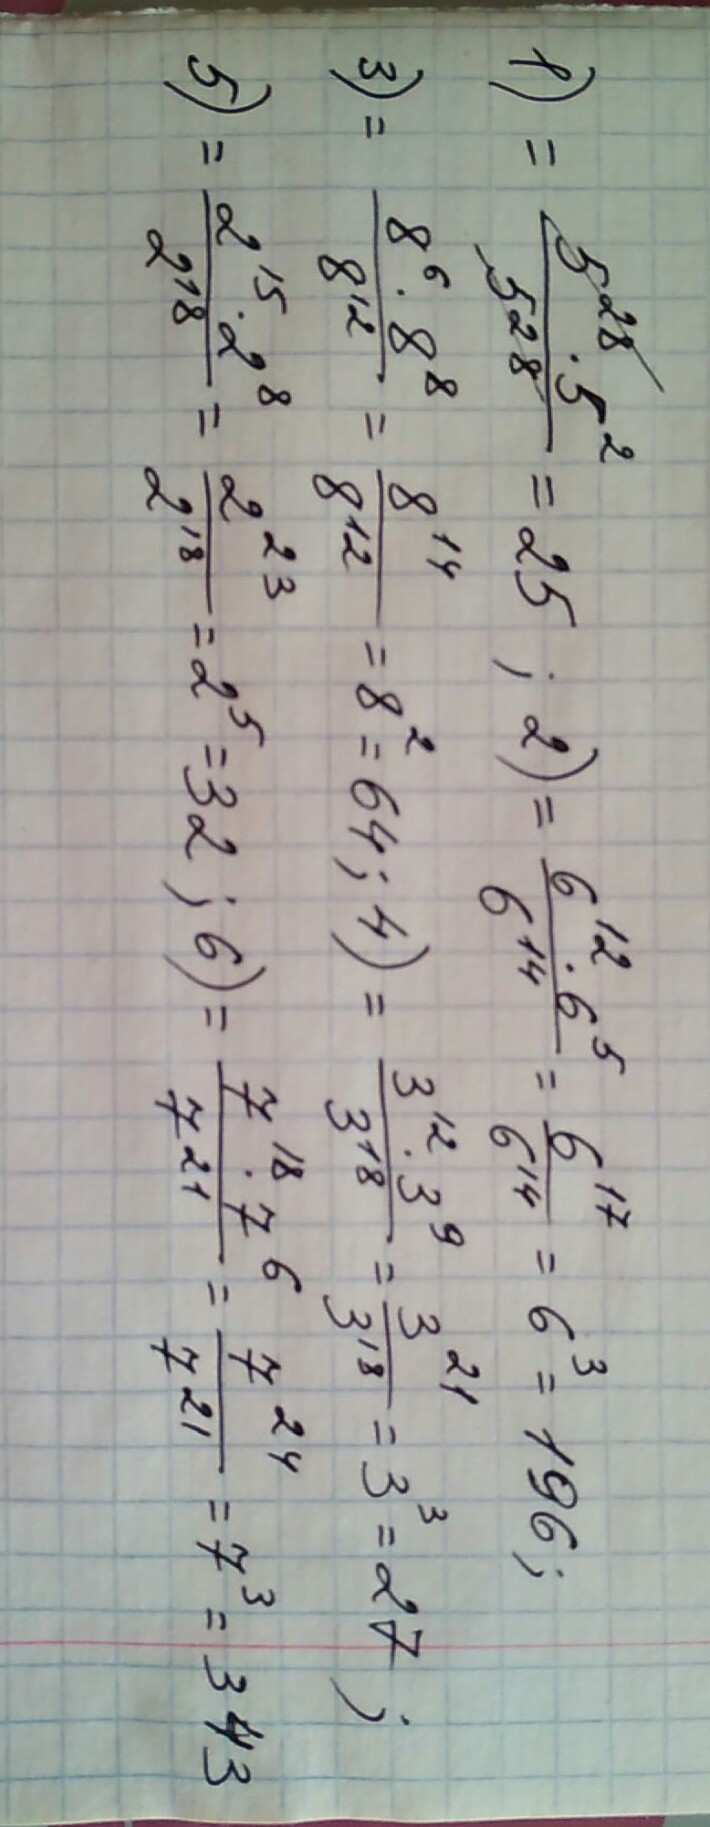 1) = 5^28 · 5^2 / 5^28 = 25 ; 2) = 6^12 · 6^5 / 6^14 = 6^17 / 6^14 = 6^3 = 196;
3) = 8^6 · 8^8 / 8^12 = 8^14 / 8^12 = 8^2 = 64; 4) = 3^12 · 3^9 / 3^18 = 3^21 / 3^18 = 3^3 = 27 ;
5) = 2^15 · 2^8 / 2^18 = 2^23 / 2^18 = 2^5 = 32; 6) = 7^18 · 7^6 / 7^21 = 7^24 / 7^21 = 7^3 = 343